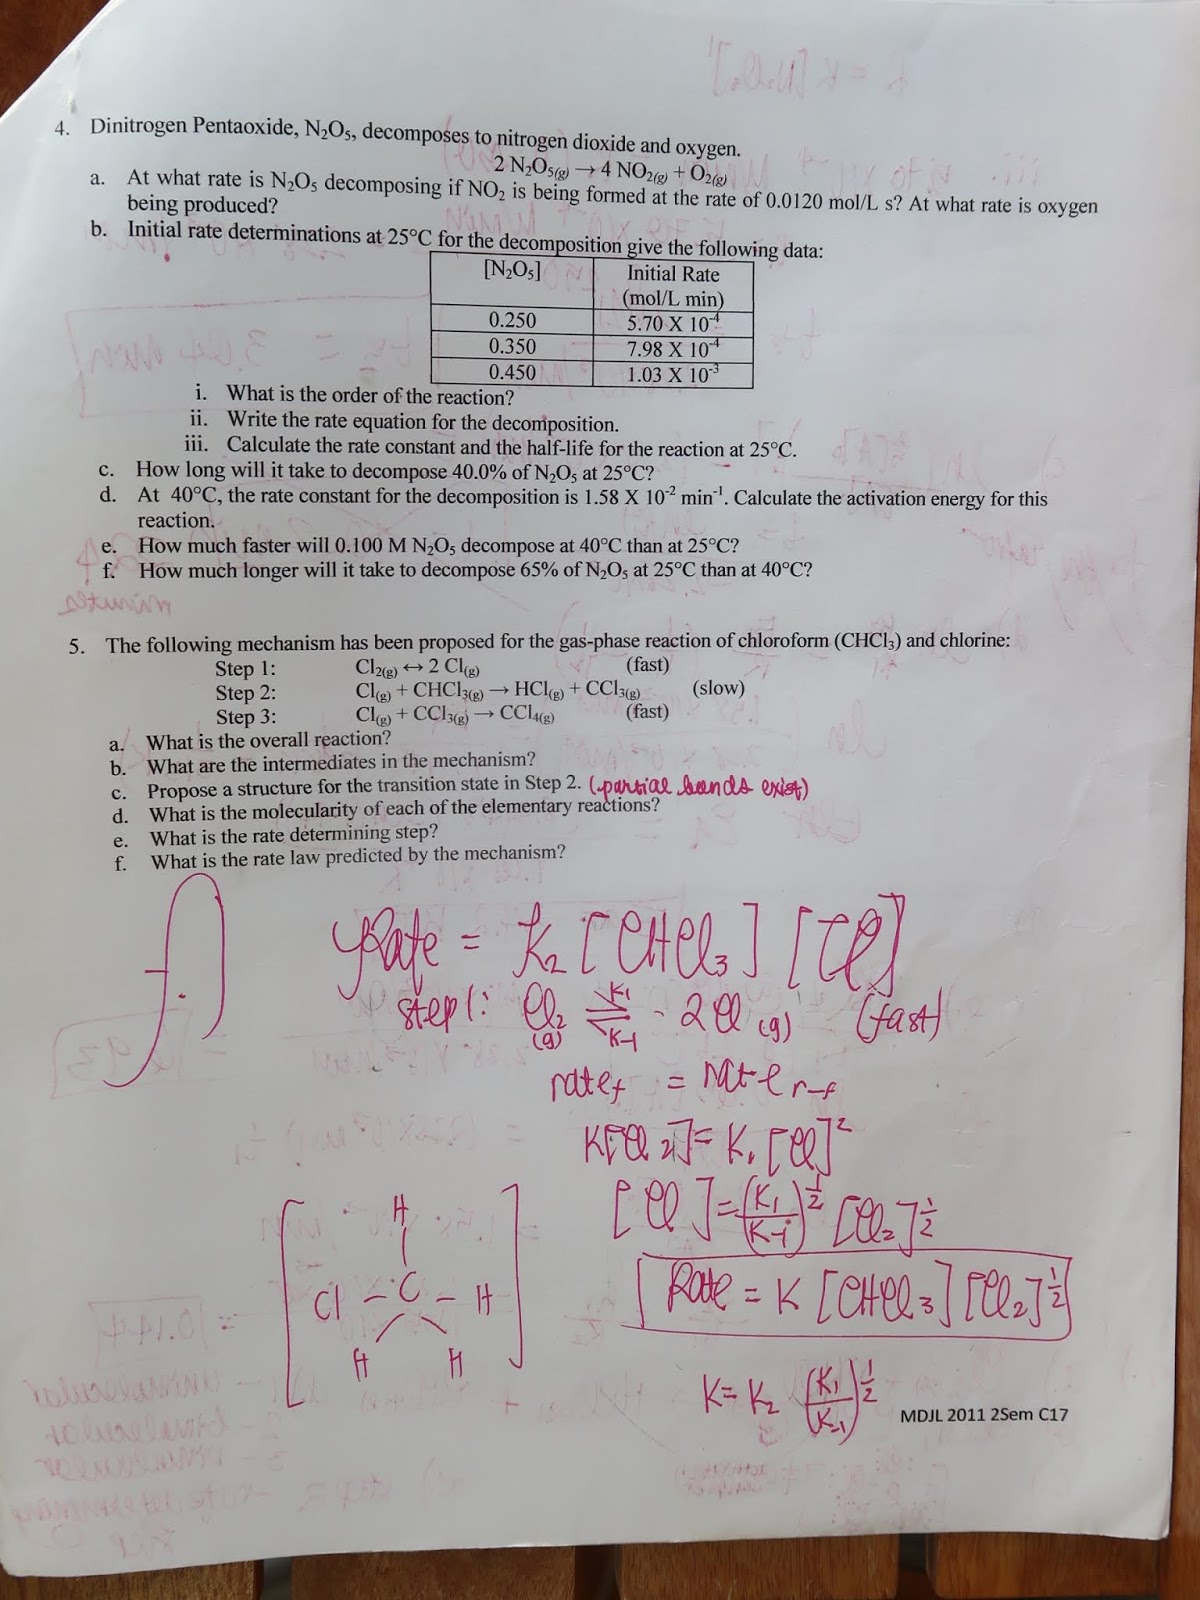 4. Dinitrogen Pentaoxide, N₂O₅, decomposes to nitrogen dioxide and oxygen.
2 N₂O₅(g) → 4 NO₂(g) + O₂(g)
a. At what rate is N₂O₅ decomposing if NO₂ is being formed at the rate of 0.0120 mol/L s? At what rate is oxygen
being produced?
b. Initial rate determinations at 25°C for the decomposition give the following data:
[N₂O₅] Initial Rate
(mol/L min)
0.250 5.70 X 10⁻⁴
0.350 7.98 X 10⁻⁴
0.450 1.03 X 10⁻³
i. What is the order of the reaction?
ii. Write the rate equation for the decomposition.
iii. Calculate the rate constant and the half-life for the reaction at 25°C.
c. How long will it take to decompose 40.0% of N₂O₅ at 25°C?
d. At 40°C, the rate constant for the decomposition is 1.58 X 10⁻² min⁻¹. Calculate the activation energy for this
reaction.
e. How much faster will 0.100 M N₂O₅ decompose at 40°C than at 25°C?
f. How much longer will it take to decompose 65% of N₂O₅ at 25°C than at 40°C?
5. The following mechanism has been proposed for the gas-phase reaction of chloroform (CHCl₃) and chlorine:
Step 1: Cl₂(g) ↔ 2 Cl(g) (fast)
Step 2: Cl(g) + CHCl₃(g) → HCl(g) + CCl₃(g) (slow)
Step 3: Cl(g) + CCl₃(g) → CCl₄(g) (fast)
a. What is the overall reaction?
b. What are the intermediates in the mechanism?
c. Propose a structure for the transition state in Step 2. (partial bonds exist)
d. What is the molecularity of each of the elementary reactions?
e. What is the rate determining step?
f. What is the rate law predicted by the mechanism?
f. Rate = K₂ [CHCl₃] [Cl]
step 1: Cl₂(g) ⇌ 2Cl(g) (fast)
K₁
K-1
rate f = rate r-f
K[Cl₂] = K₁ [Cl]²
[Cl] = (K₁/K-1)^½ [Cl₂]^½
Rate = K [CHCl₃] [Cl₂]^½
H
Cl – C – H
H H
K = K₂ (K₁/K-1)^½
MDJL 2011 2Sem C17